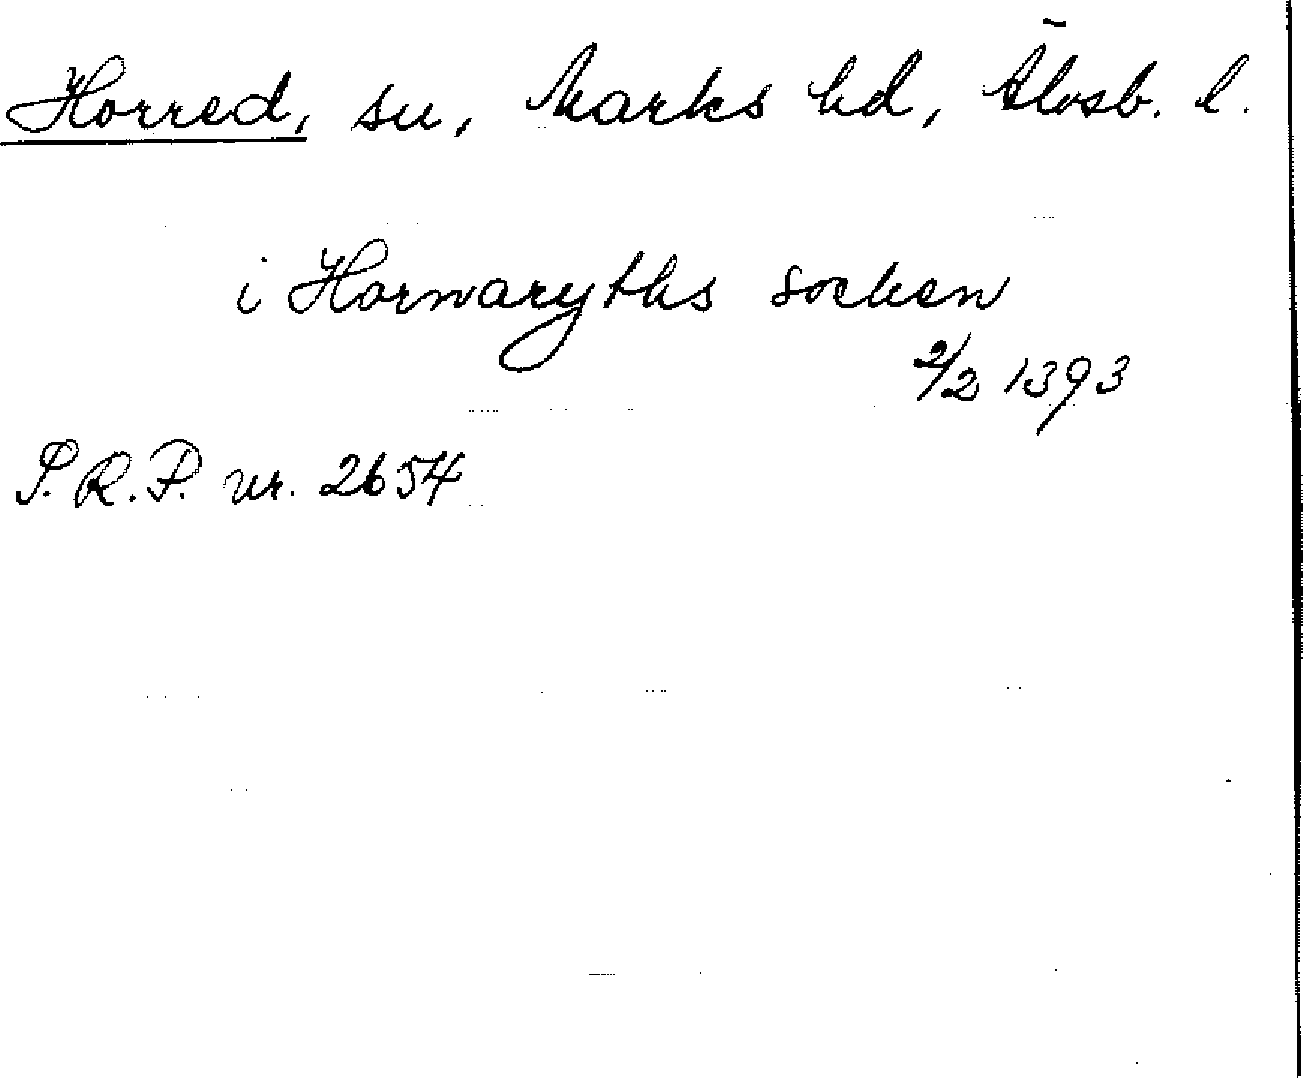 Horred, sn, Marks hd, Älvsb. l.
i Hornaryths socken
2/2 1393
S.R.P. nr. 2654